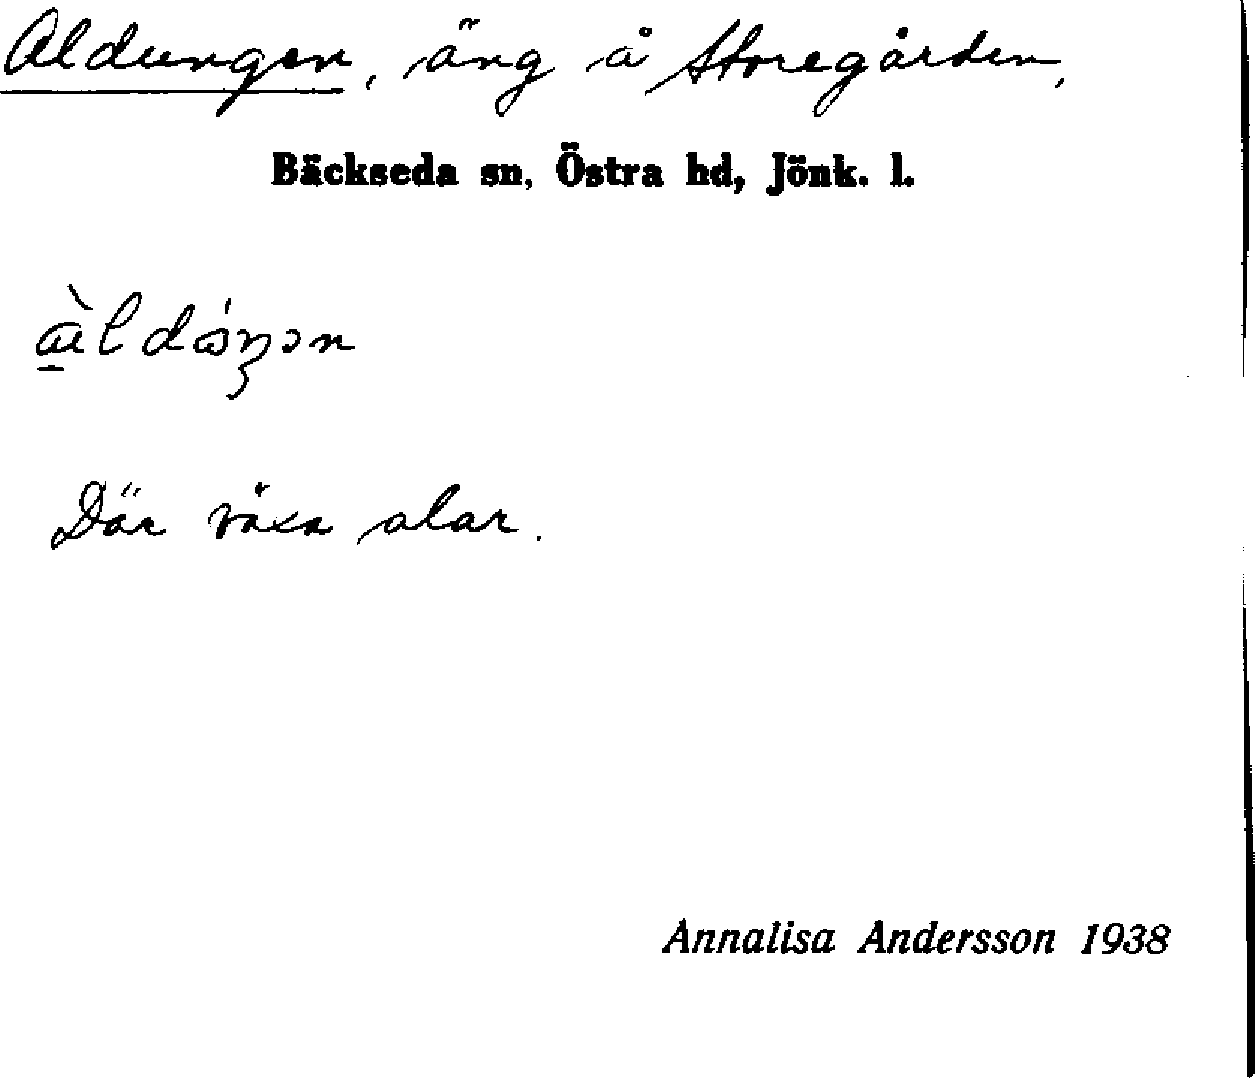 Aldungen, äng å Storegården,
Bäckseda sn, Östra hd, Jönk. l.
Där växa alar.
Annalisa Andersson 1938